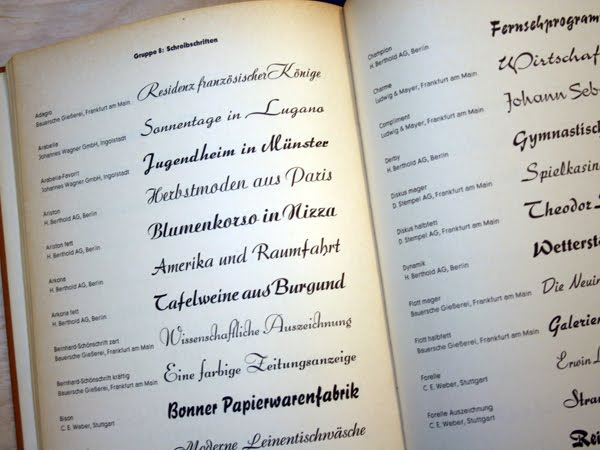 Gruppe 8: Schreibschriften
Adagio
Bauersche Gießerei, Frankfurt am Main
Residenz französischer Könige
Arabella
Johannes Wagner GmbH, Ingolstadt
Sonnentage in Lugano
Arabella-Favorit
Johannes Wagner GmbH, Ingolstadt
Jugendheim in Münster
Ariston
H. Berthold AG, Berlin
Herbstmoden aus Paris
Ariston fett
H. Berthold AG, Berlin
Blumenkorso in Nizza
Arkona
H. Berthold AG, Berlin
Amerika und Raumfahrt
Arkona fett
H. Berthold AG, Berlin
Tafelweine aus Burgund
Bernhard-Schönschrift zart
Bauersche Gießerei, Frankfurt am Main
Wissenschaftliche Auszeichnung
Bernhard-Schönschrift kräftig
Bauersche Gießerei, Frankfurt am Main
Eine farbige Zeitungsanzeige
Bison
C. E. Weber, Stuttgart
Bonner Papierwarenfabrik
Moderne Leinentischwäsche
Champion
H. Berthold AG, Berlin
Fernsehprogram
Charme
Ludwig & Mayer, Frankfurt am Main
Wirtschaf
Compliment
Ludwig & Mayer, Frankfurt am Main
Johann Seb
Derby
H. Berthold AG, Berlin
Gymnastisc
Diskus mager
D. Stempel AG, Frankfurt am Main
Spielkasin
Diskus halbfett
D. Stempel AG, Frankfurt am Main
Theodor
Dynamik
H. Berthold AG, Berlin
Wetterst
Flott mager
Bauersche Gießerei, Frankfurt am Main
Die Neuin
Flott halbfett
Bauersche Gießerei, Frankfurt am Main
Galerien
Forelle
C. E. Weber, Stuttgart
Erwin
Forelle Auszeichnung
C. E. Weber, Stuttgart
Stra
Rei